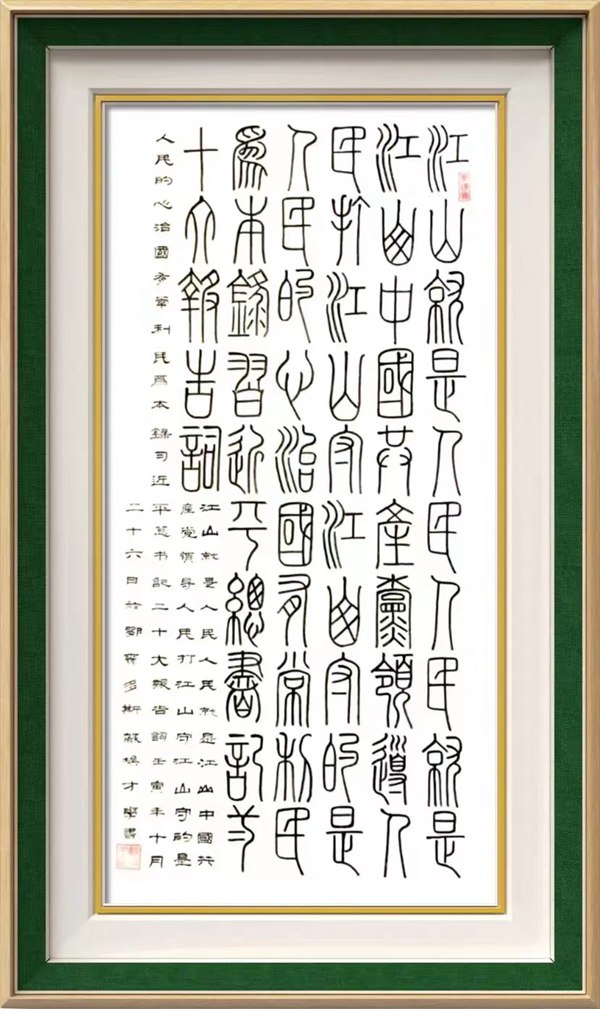 江山就是人民人民就是
江山中國共產黨領導人
民打江山守江山守的是
人民的心治國有常利民
為本錄習近平總書記
十大報告詞
江山就是人民人民就是江山中國共
產黨領导人民打江山守江山守的是
人民的心治國有常利民爲本錄习近
平总书记二十大報告詞壬寅年十月
二十六日於鄂爾多斯 才學書